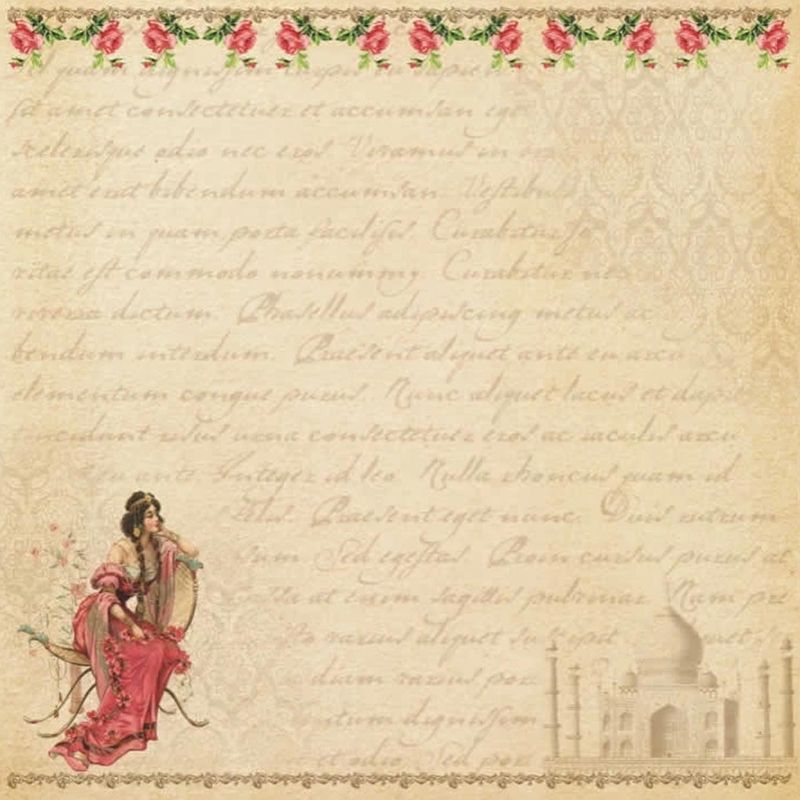 quam dignissim turpis eu dapibus
sit amet consectetuer et accumsan eget
scelerisque odio nec eros. Vivamus in
amet erat bibendum accumsan. Vestibul
metus in quam porta facilisis. Curabitur
vitae est commodo nonummy. Curabitur nec
viverra dictum. Phasellus adipiscing metus ac
bendum interdum. Praesent aliquet ante eu arcu
elementum congue purus. Nunc aliquet lacus et dapi
tincidunt risus urna consectetuer eros ac iaculis arcu
eu ante. Integer id leo. Nulla rhoncus quam id
Praesent eget nunc. Duis rutrum
Sed egestas. Proin cursus purus at
at enim sagittis pulvinar. Nam pre
varius aliquet suscipit
diam varius por
entum dignissim
odio. Sed por